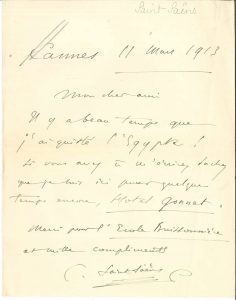 Saint Saëns
Cannes 11 Mars 1913
Mon cher ami
Il y a beau temps que
j'ai quitté l'Egypte !
Si vous avez à m'écrire, sachez
que je suis ici pour quelque
temps encore, Hotel Gonnet.
Merci pour l'Ecole Buissonnière
et mille compliments
C. Saint-Saëns